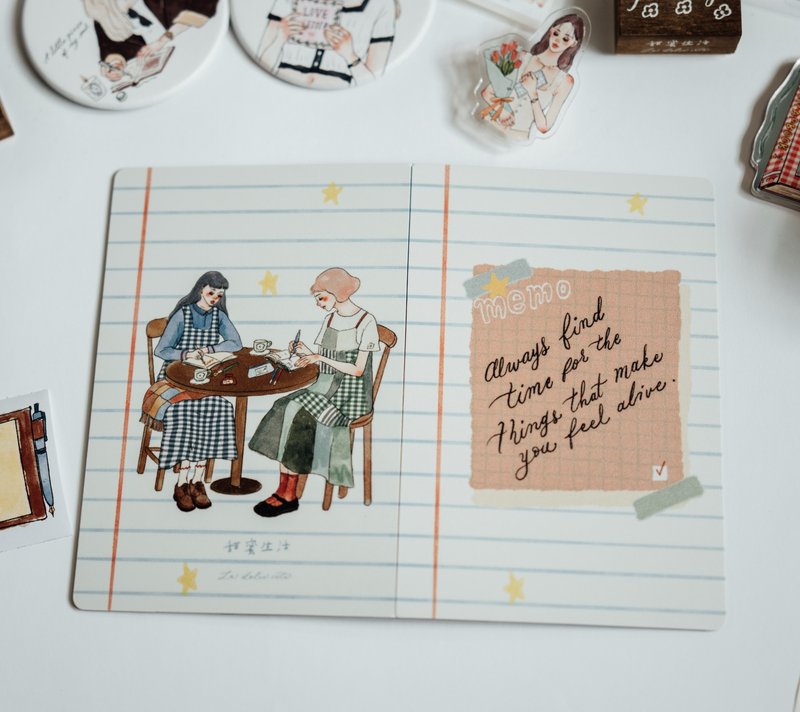 LOVE
甜蜜生活
memo
Always find
time for the
things that make
you feel alive.
甜蜜生活
La dolce vita